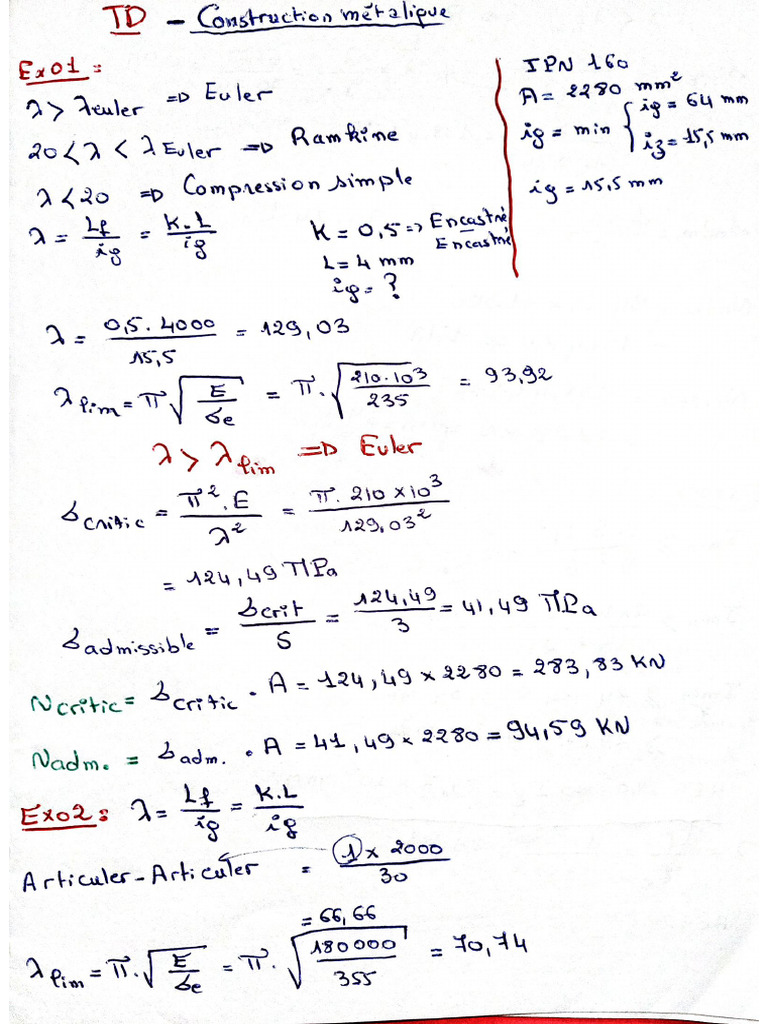 TD - Construction métalique
Exo1 :
λ > λeuler => Euler
20 < λ < λ Euler => Ramkine
λ < 20 => Compression simple
λ = Lf/ig = K.L/ig
K = 0,5 => Encastré Encastré
L = 4 mm
ig = ?
IPN 160
A = 2280 mm²
ig = min { ig = 64 mm
iz = 15,5 mm
ig = 15,5 mm
λ = 0,5 . 4000 / 15,5 = 129,03
λlim = π √(E/σe) = π . √(210.10³/235) = 93,92
λ > λlim => Euler
σcritic = π².E/λ² = π. 210 × 10³/129,03²
= 124,49 MPa
σadmissible = σcrit/S = 124,49/3 = 41,49 MPa
Ncritic = σcritic . A = 124,49 × 2280 = 283,83 KN
Nadm. = σadm. . A = 41,49 × 2280 = 94,59 KN
Exo2 : λ = Lf/ig = K.L/ig
Articuler - Articuler = 1 × 2000/30
= 66,66
λlim = π . √(E/σe) = π . √(180000/355) = 70,74